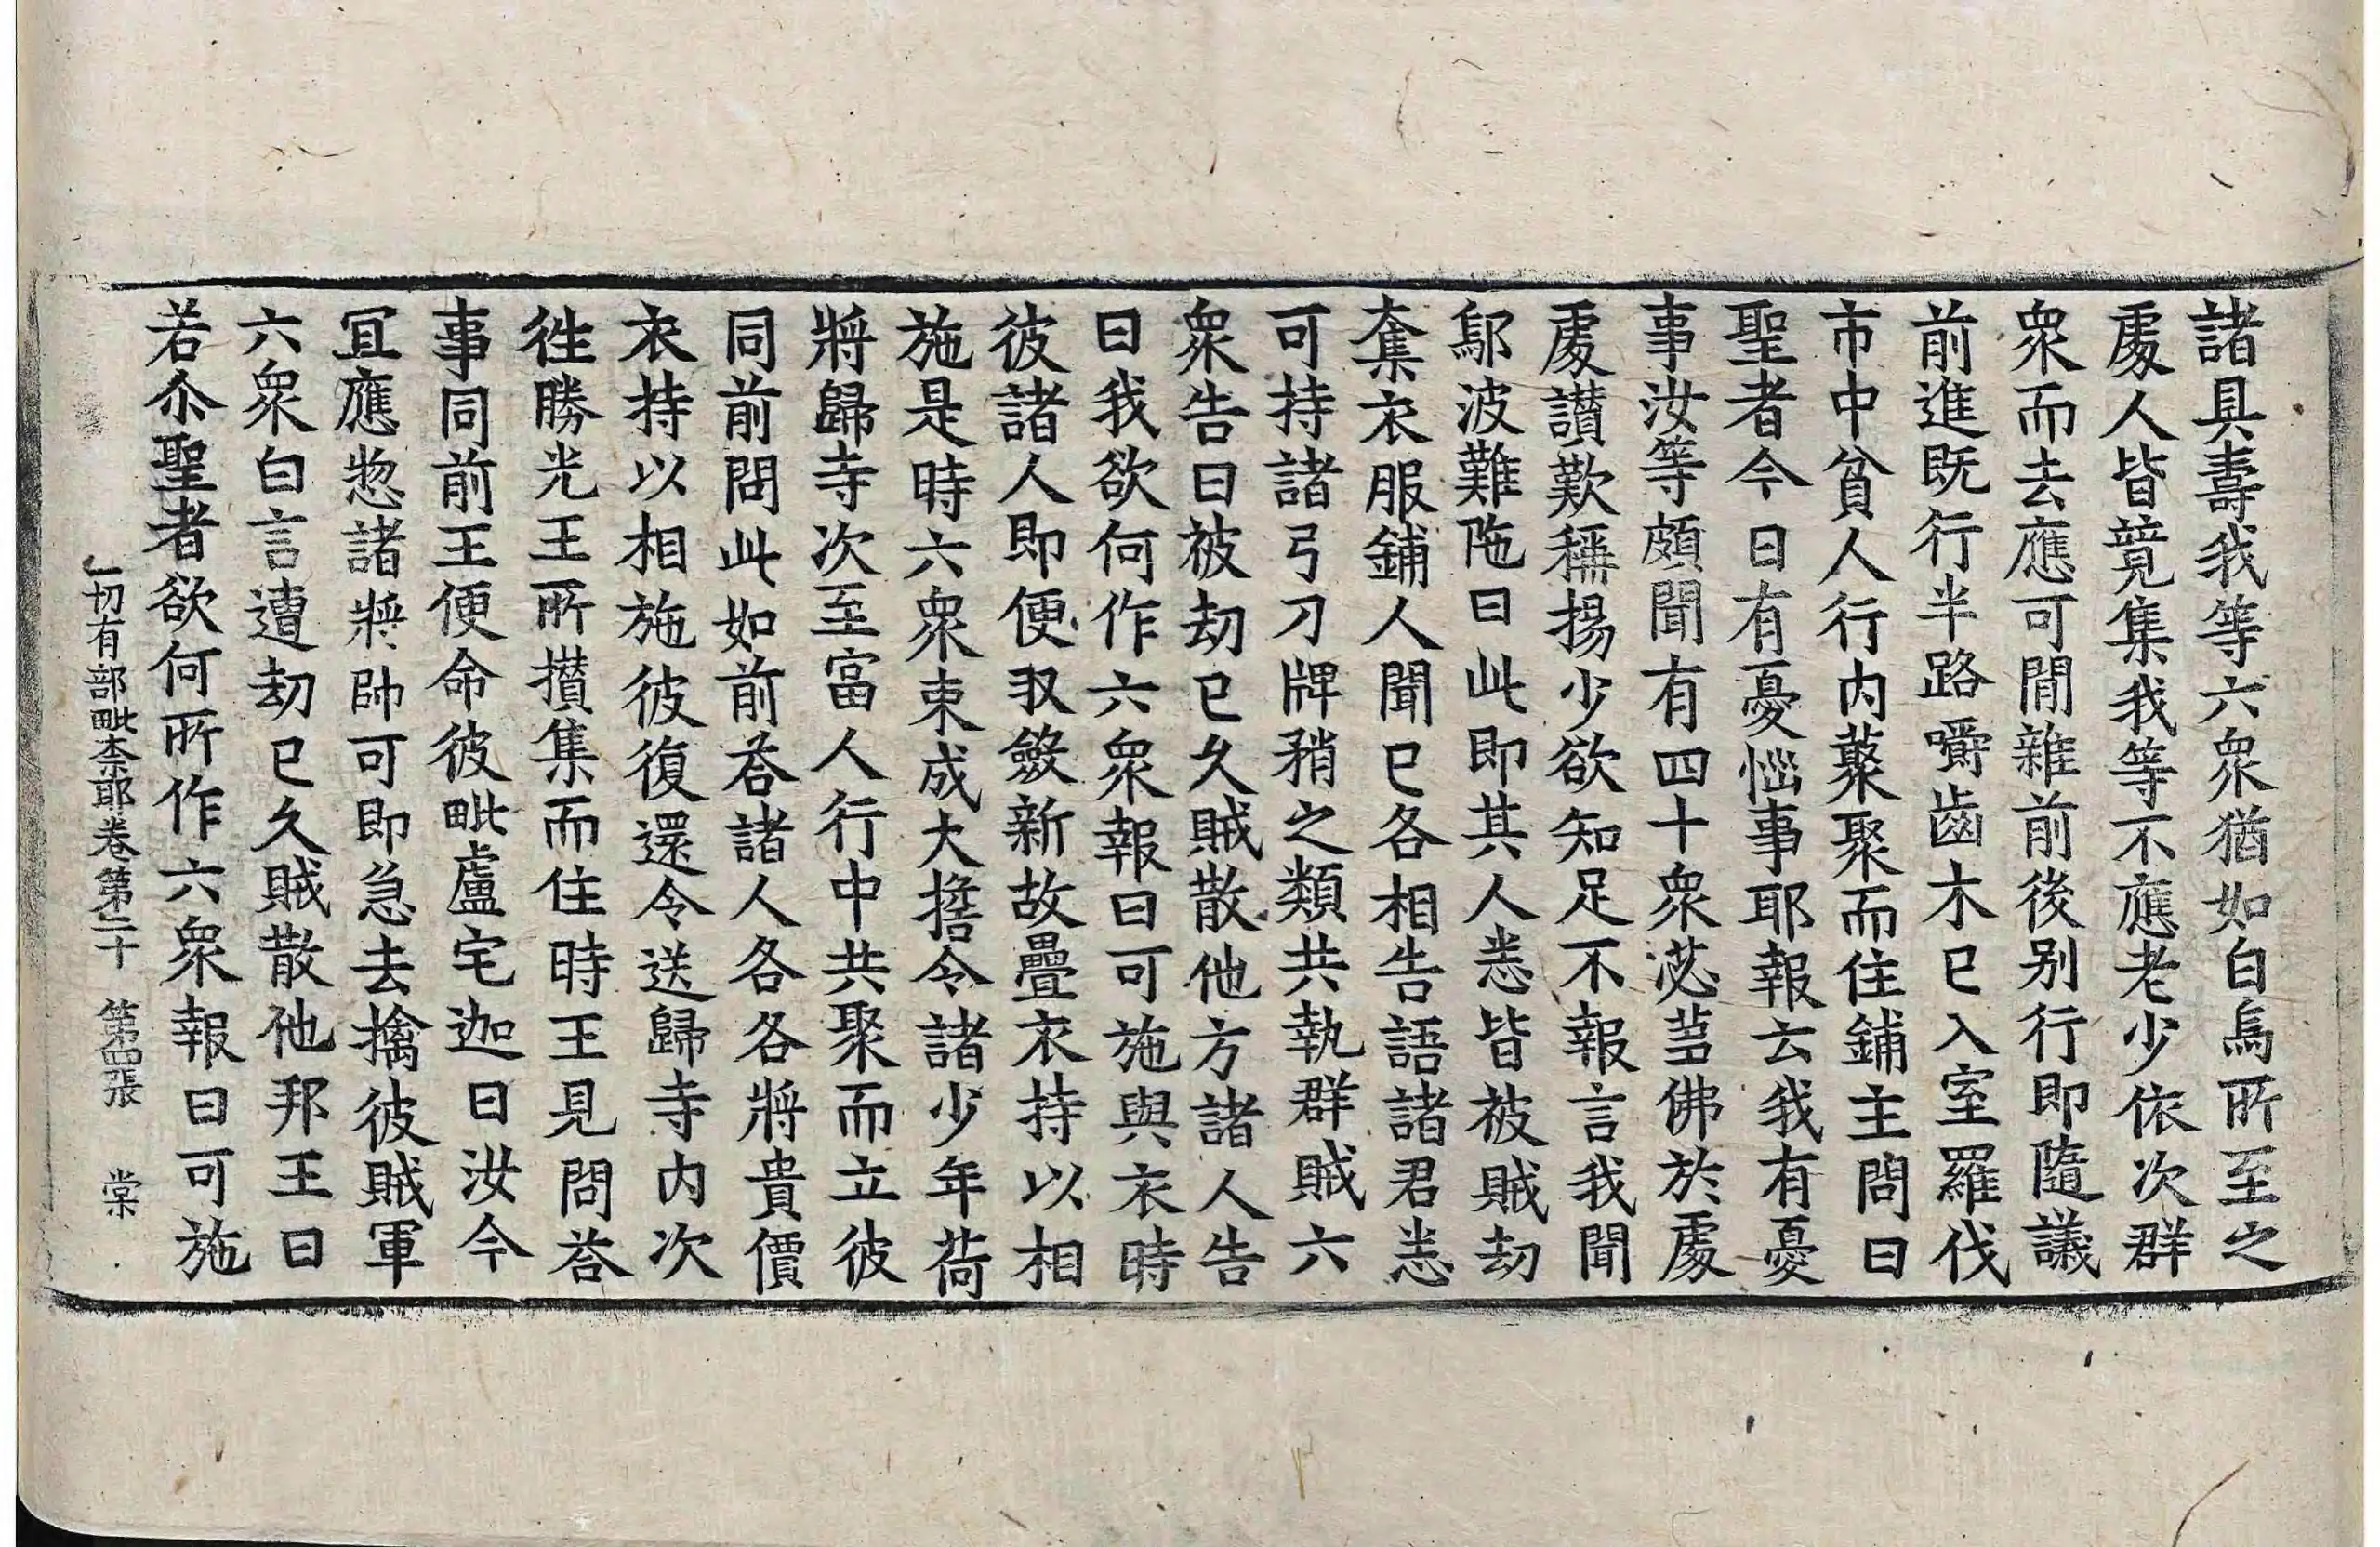 諸具壽我等六衆猶如白烏所至之
處人皆競集我等不應老少依次群
衆而去應可閒雜前後別行即隨議
前進既行半路嚼齒木已入室羅伐
市中貧人行内藂聚而住鋪主問曰
聖者今日有憂惱事耶報云我有憂
事汝等頗聞有四十衆苾芻佛於處
處讃歎稱揚少欲知足不報言我聞
鄔波難陁曰此即其人悉皆被賊劫
奪衣服鋪人聞已各相告語諸君悉
可持諸弓刀牌矟之類共執群賊六
衆告曰被劫已久賊散他方諸人告
曰我欲何作六衆報曰可施與衣時
彼諸人即便収斂新故疊衣持以相
施是時六衆束成大擔令諸少年荷
將歸寺次至富人行中共聚而立彼
同前問此如前荅諸人各各將貴價
衣持以相施彼復還令送歸寺内次
徃勝光王所攢集而住時王見問荅
事同前王便命彼毗盧宅迦曰汝今
冝應惣諸將帥可即急去擒彼賊軍
六衆白言遭劫已久賊散他邦王曰
若尒聖者欲何所作六衆報曰可施
一切有部毗柰耶卷第二十 第四張 棠